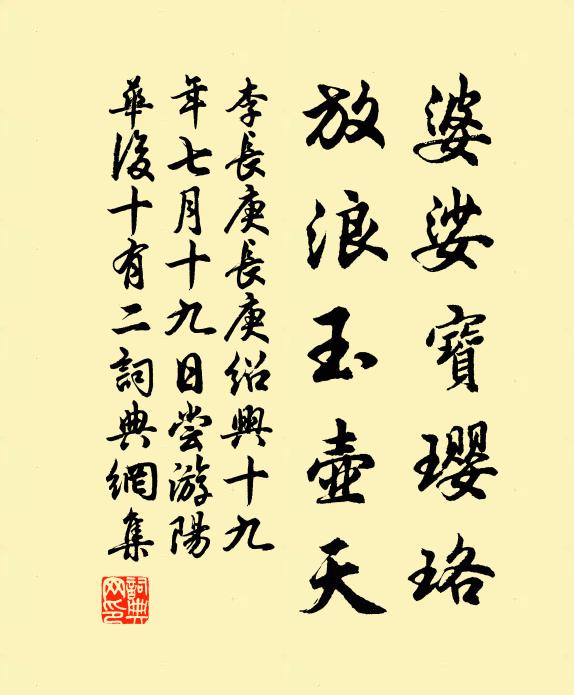 婆娑寶璎珞
放浪玉壺天
李長庚長庚紹興十九
年七月十九日尝游陽
華後十有二詞典網集
詞典
网印